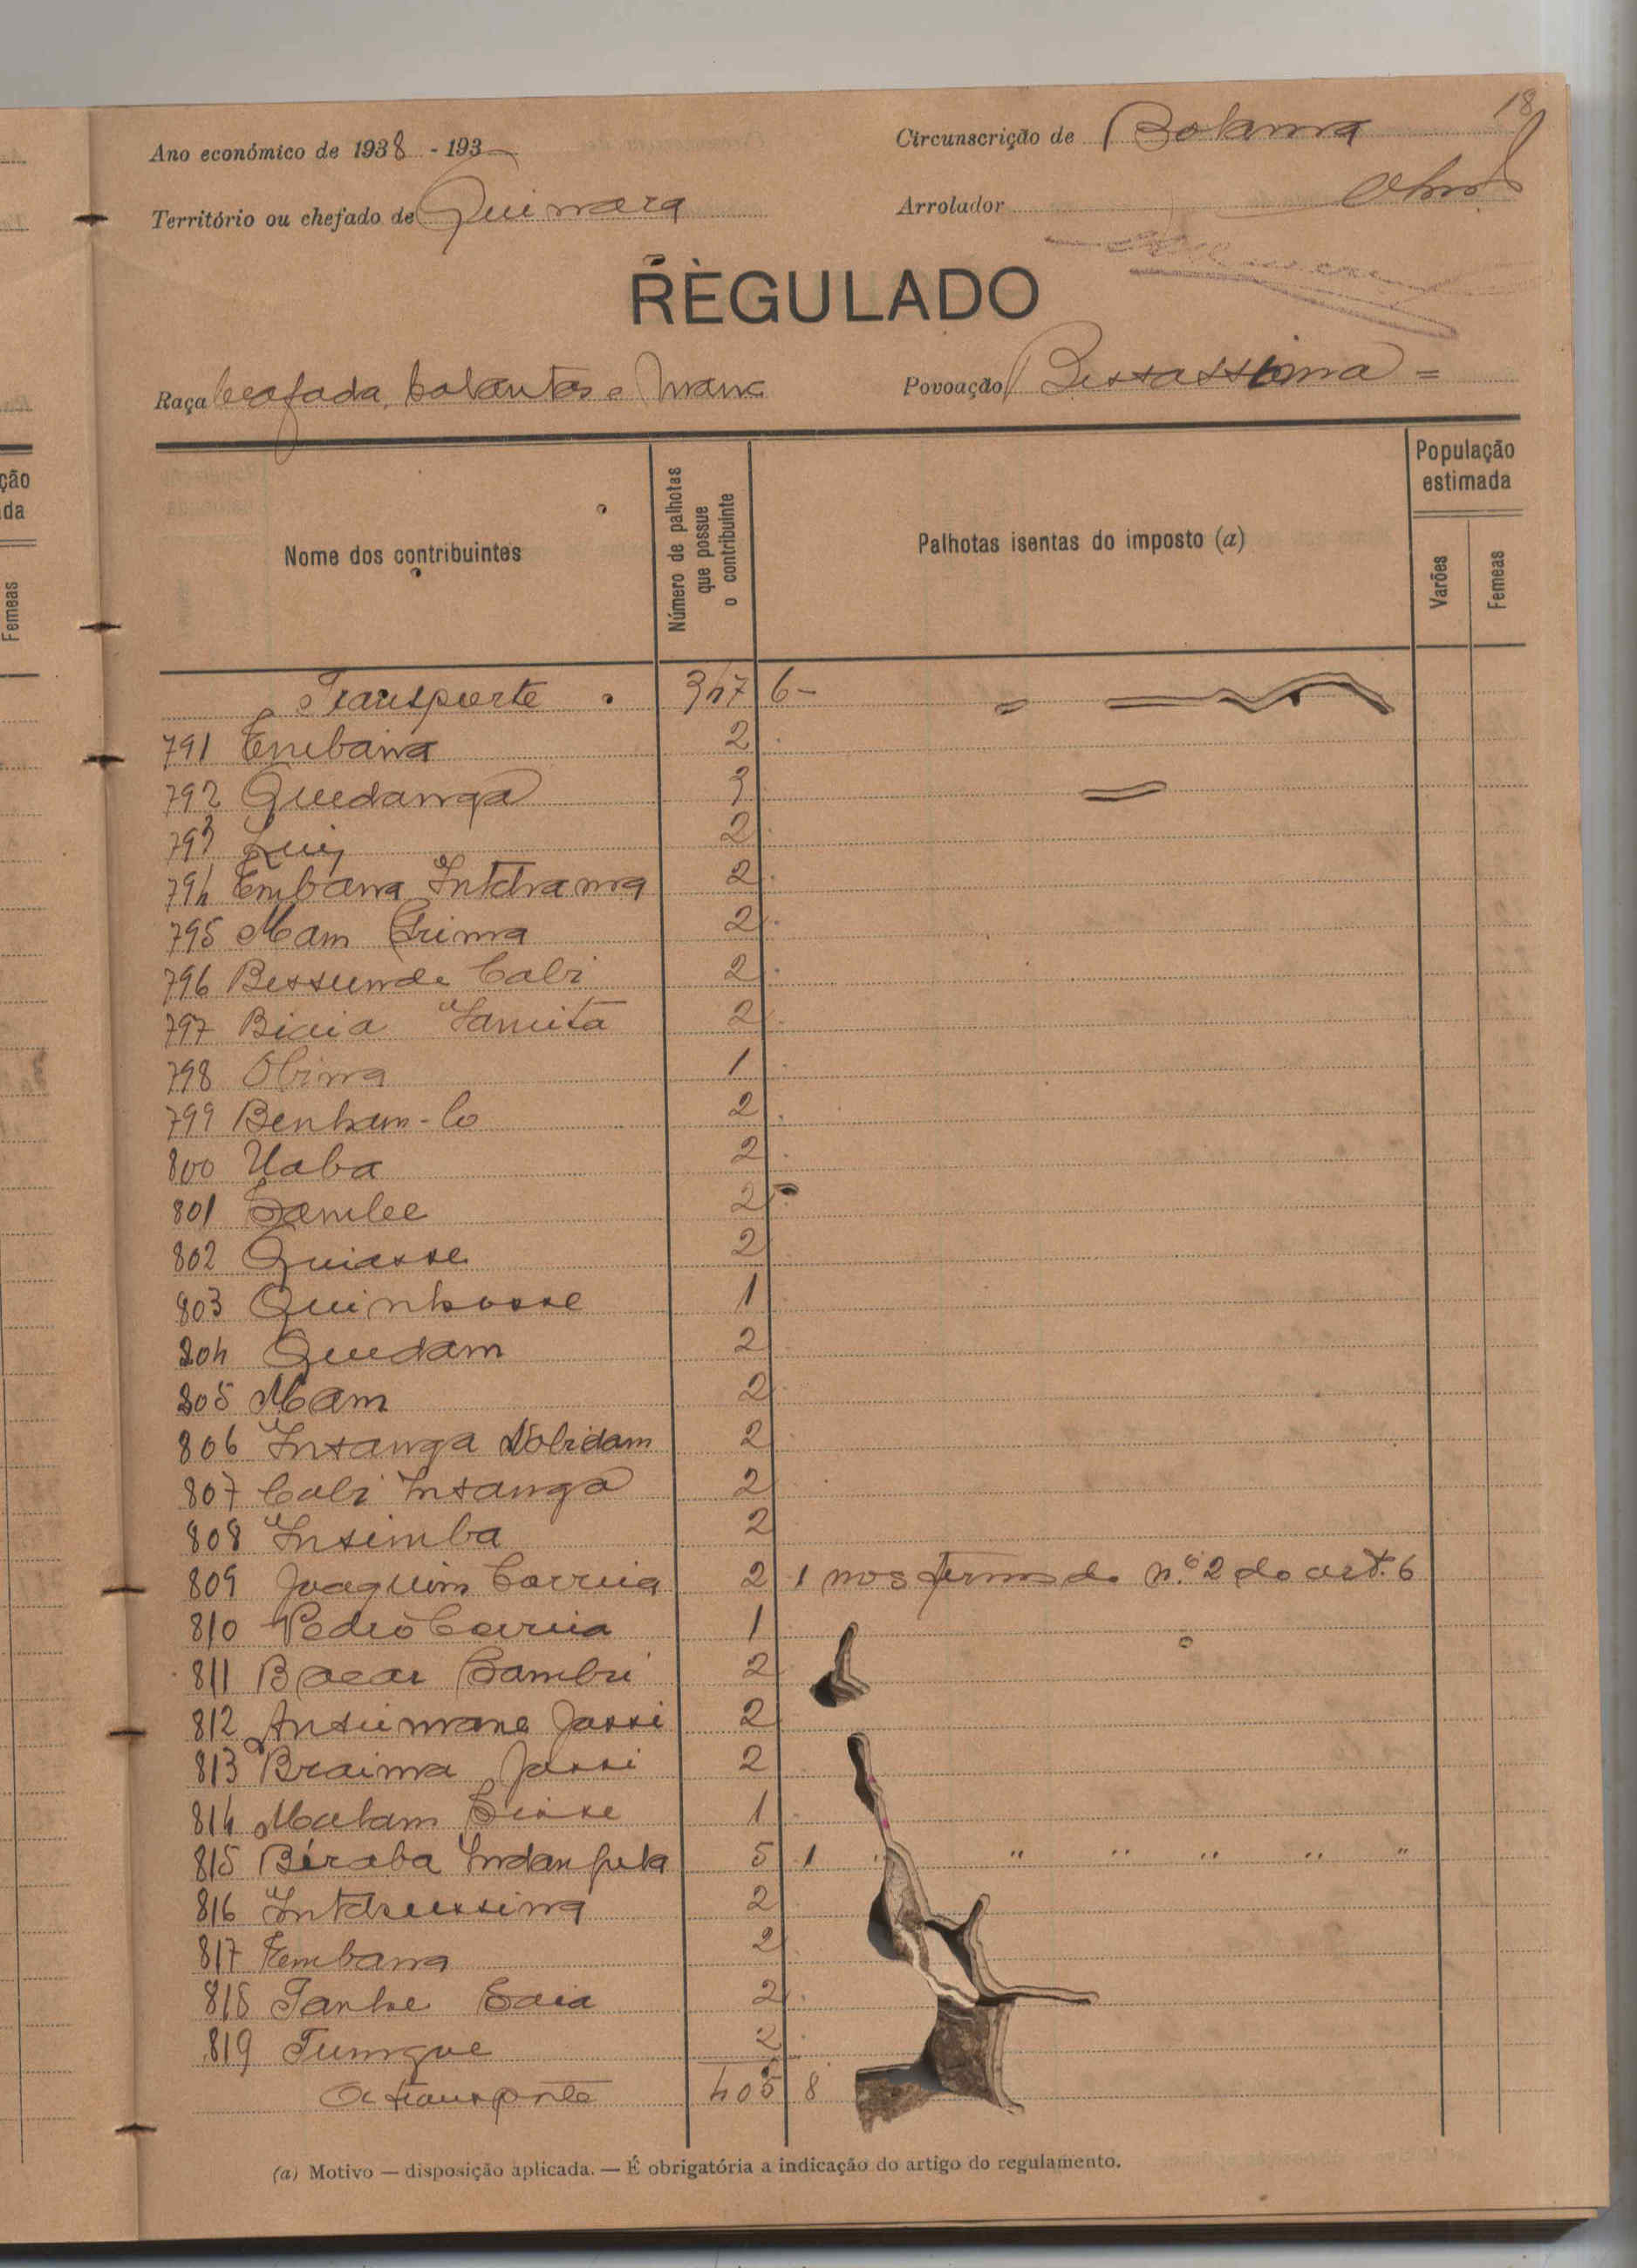 18
Ano económico de 1938 - 193
Circunscrição de Bolama
Território ou chefado de Quinara
Arrolador
REGULADO
Raça beafada, balantas e
Povoação Bissassema =
Nome dos contribuintes
Número de palhotas que possue o contribuinte
Palhotas isentas do imposto (a)
População estimada
Varões
Femeas
Transporte 347 6 -
791 Embana 2
792 Quedanga 3
793 Luiz 2
794 Embana Intchama 2
795 Mam Guima 2
796 Bessunde Cabi 2
797 Biaia 2
798 Obina 1
799 Benham-Co 2
800 Uaba 2
801 Sambee 2
802 Quiasse 2
803 Quinhasse 1
804 Quedam 2
805 Mam 2
806 Insanga Nbidam 2
807 Cabi Insanga 2
808 Insimba 2
809 Joaquim Correia 2 1 nos termos do n.º 2 do art. 6
810 Pedro Correia 1
811 Bacar Cambri 2
812 Ansumane Jassi 2
813 Braima Jassi 2
814 Malam Sisse 1
815 Biraba Indanfeta 5 1 " " " " " "
816 Intchussina 2
817 Embana 2
818 Tanhe Saia 2
819 Tungue 2
A transporte 405 8
(a) Motivo — disposição aplicada. — É obrigatória a indicação do artigo do regulamento.
ção
da
Femeas